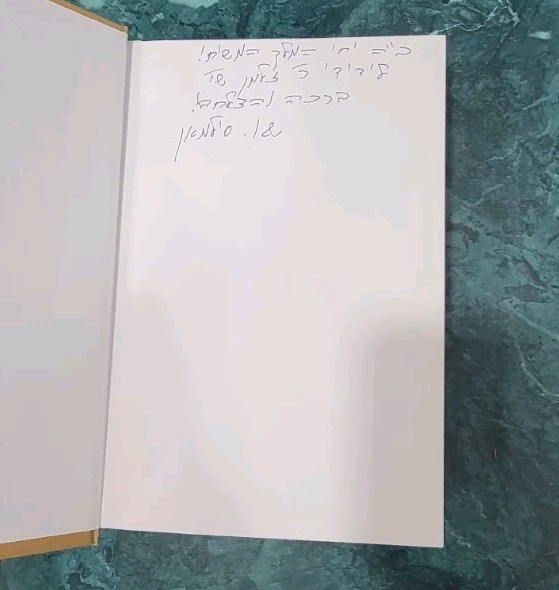 ב"ה יחי המלך המשיח!
לידידי ר' זלמן שי'
ברכה והצלחה!
סילמאן